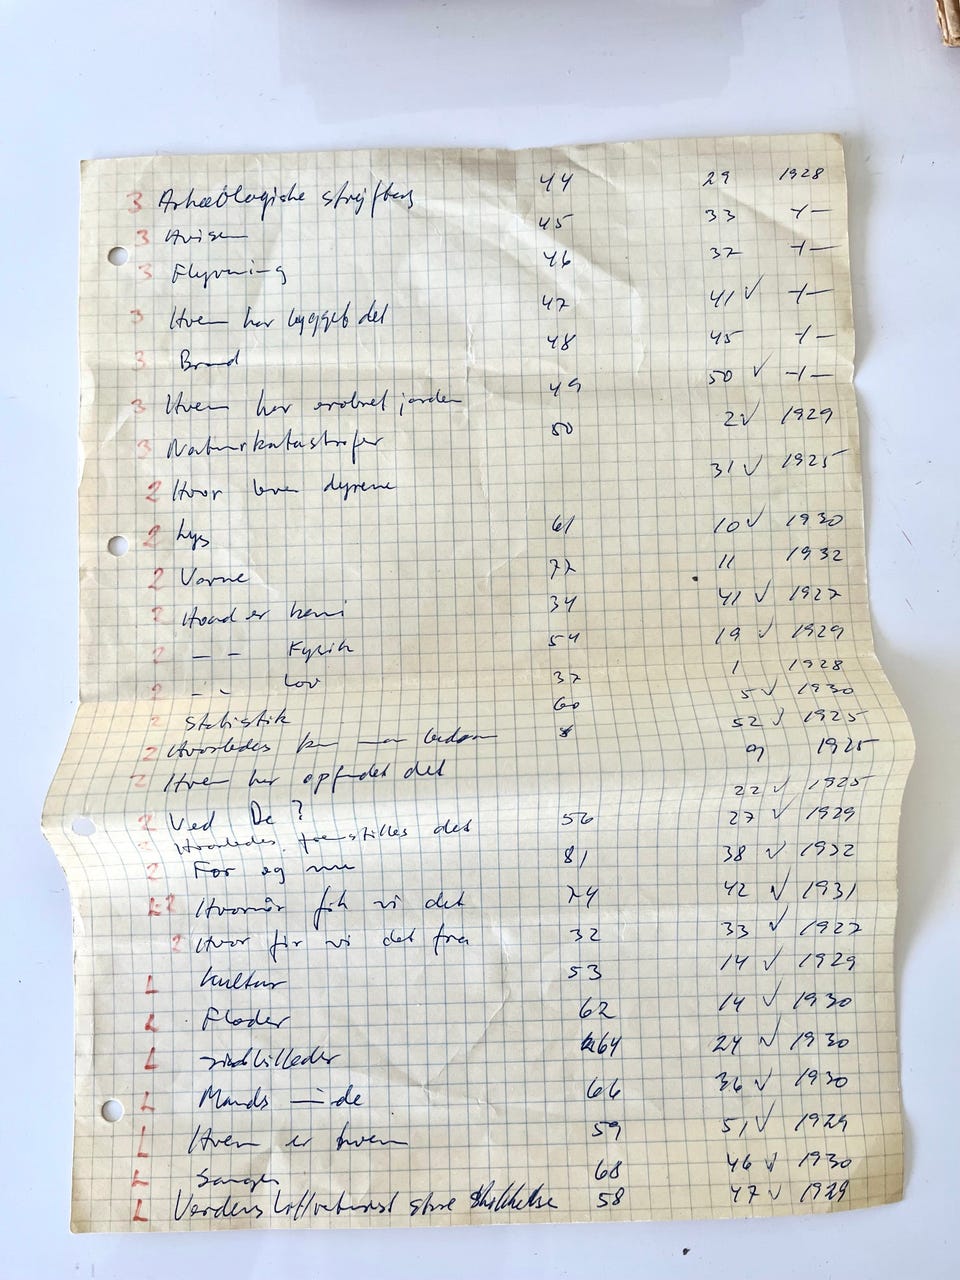 3 Arkæologiske strejftog 44 29 1928
3 Avisen 45 33 -"-
3 Flyvning 46 37 -"-
3 Hvem har bygget det 47 41 ✓ -"-
3 Brand 48 45 -"-
3 Hvem har erobret jorden 49 50 ✓ -"-
3 Naturkatastrofer 50 2 ✓ 1929
2 Hvor lever dyrene 31 ✓ 1925
2 Lys 61 10 ✓ 1930
2 Varme 77 11 1932
2 Hvad er kemi 34 41 ✓ 1927
2 — — Fysik 54 19 ✓ 1929
2 - - Lov 37 1 1928
2 Statistik 60 5 ✓ 1930
2 Hvorledes kan man bedøm 52 ✓ 1925
2 Hvem har opfundet det 9 1925
2 Ved De? 22 ✓ 1925
2 Hvorledes fremstilles det 56 27 ✓ 1929
2 Før og nu 81 38 ✓ 1932
2 Hvornår fik vi det 74 42 ✓ 1931
2 Hvor får vi det fra 32 33 ✓ 1927
L Kultur 53 14 ✓ 1929
L Floder 62 14 ✓ 1930
L 64 24 ✓ 1930
L Mands minde 66 36 ✓ 1930
L Hvem er hvem 59 51 ✓ 1929
L Sangen 68 46 ✓ 1930
L Verdens store 58 47 ✓ 1929